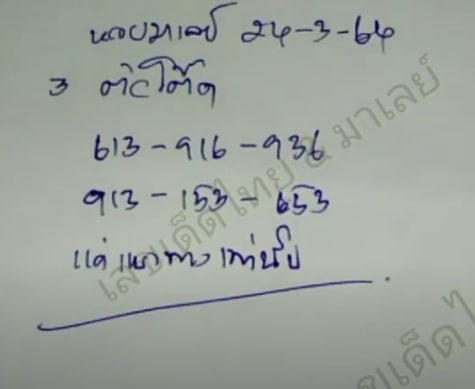 หวยมาเลย์ 24-3-64
3 ตัวโต๊ด
613 - 916 - 936
913 - 153 - 653
แค่แนวทางเท่านั้น
เลขเด็ดไทย & มาเลย์
เลขเด็ดไ